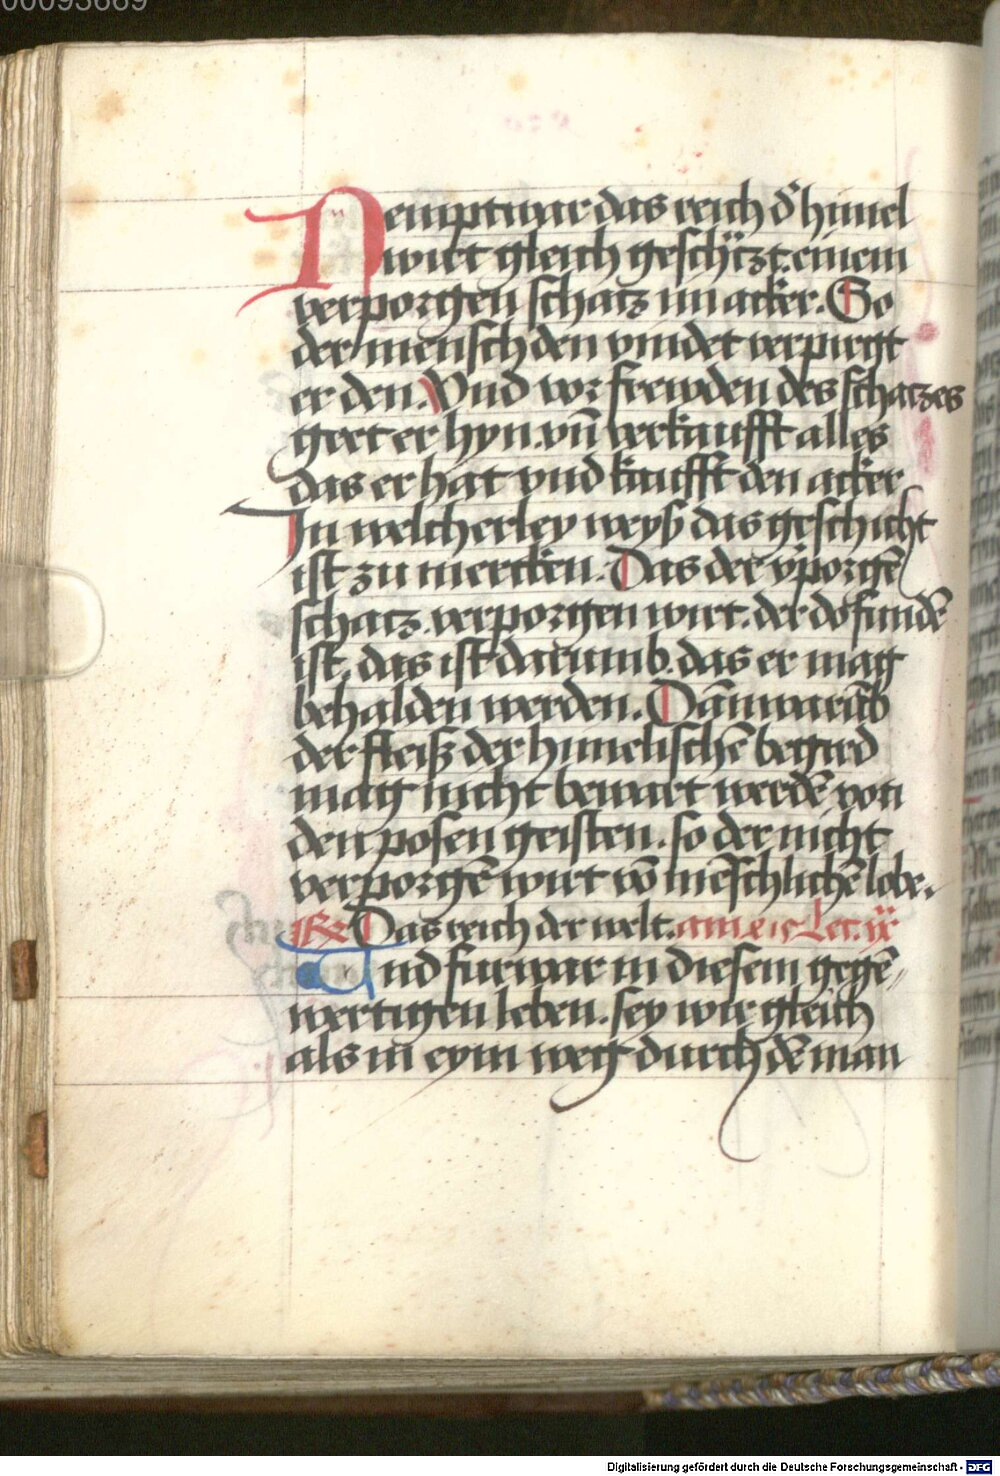 00093669
Nempt war das reich dʼ himel
wirt gleich geschÿczt einem
verporgen schatz im acker. So
der mensch den vindet verpirgt
er den. Vnd vor frewden des schatzes
geet er hyn. vn̄ verkaufft alles
das er hat vnd kaufft den acker
In welcherley weyß das geschicht
ist zu mercken. Das der v̓porgē
schatz. verporgen wirt. der do fundē
ist. das ist darumb. das er mag
behalden werden. Dān warūb
der fleiß der himelischē begird
mag nicht bewart werdē von
den posen geisten. so der nicht
verporgē wirt vō mēschlichē lobe.
Rx Das reich der welt. Lec. ix
Und furwar in diesem gegē//
wertigen leben. sey wir gleich
als in eym weg durch dē man
Digitalisierung gefördert durch die Deutsche Forschungsgemeinschaft - DFG